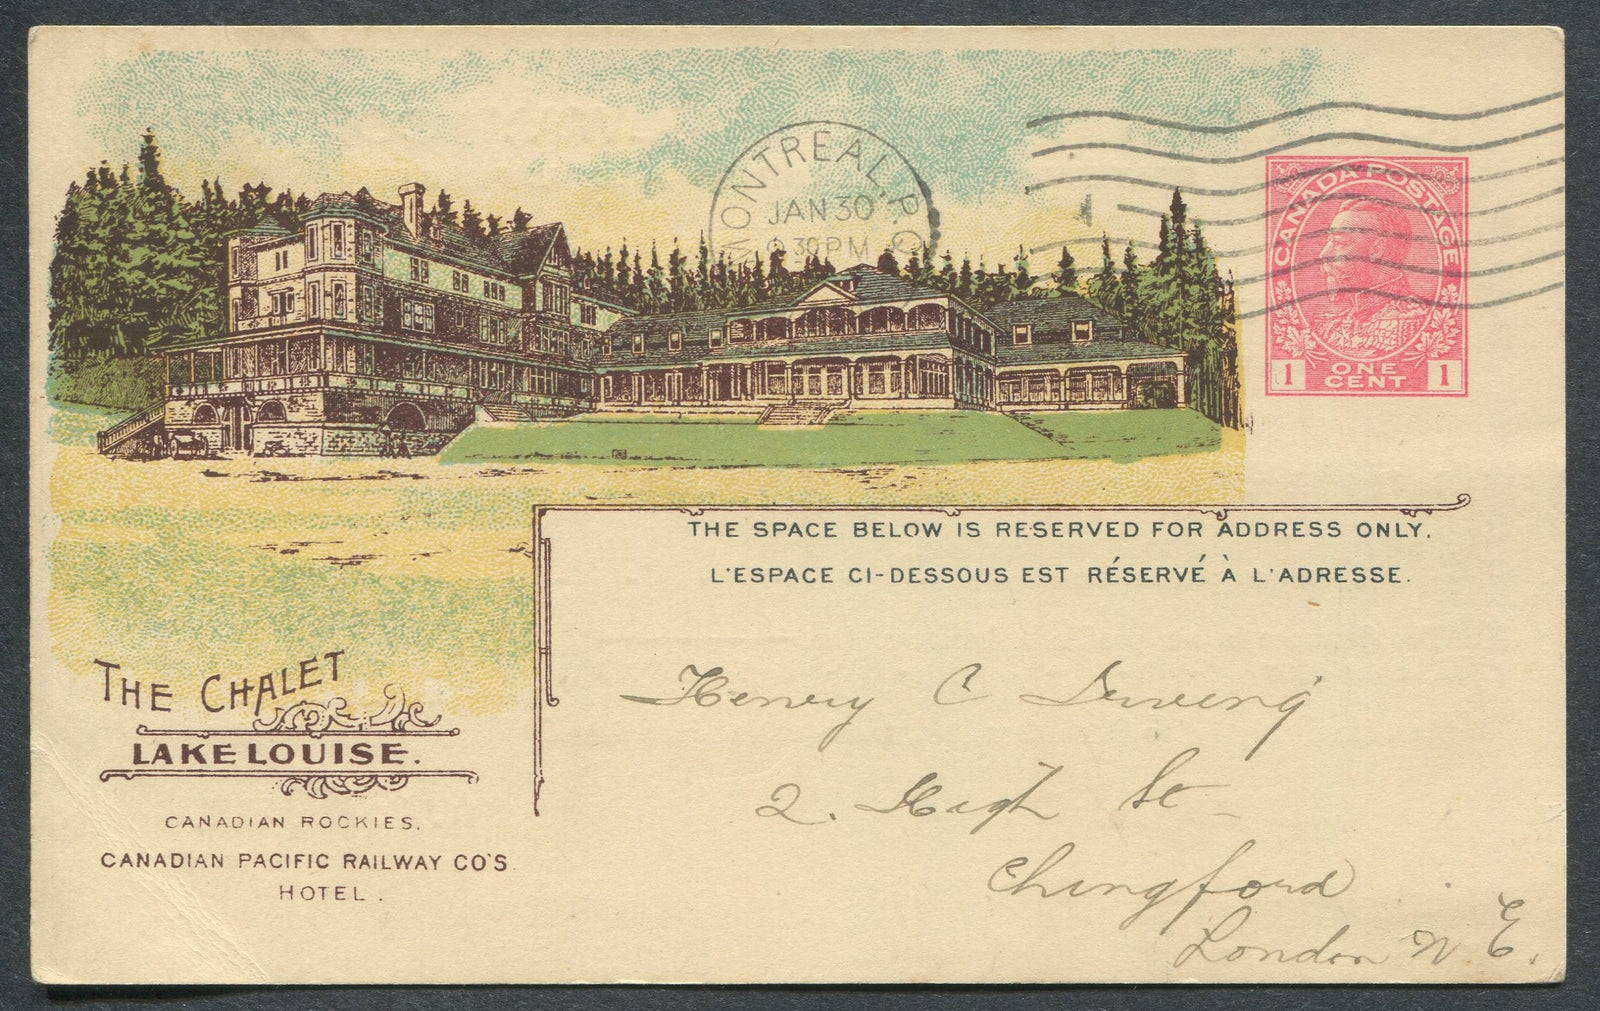 MONTREAL. P.Q.
JAN 30
9 30 PM
CANADA POSTAGE
1 ONE CENT 1
THE SPACE BELOW IS RESERVED FOR ADDRESS ONLY.
L'ESPACE CI-DESSOUS EST RÉSERVÉ À L'ADRESSE.
THE CHALET
LAKE LOUISE.
CANADIAN ROCKIES.
CANADIAN PACIFIC RAILWAY CO'S.
HOTEL.
Henry C
2. High St
Chingford
London N. E.